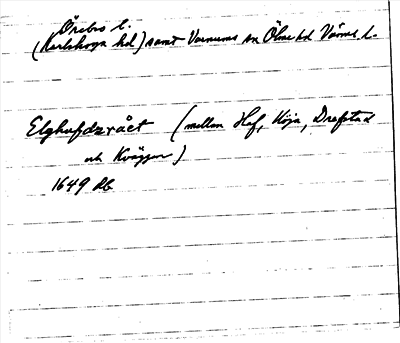 Örebro l.
(Karlskoga hd) samt Varnums sn Ölme hd Värml. l.
Elghufdzrået (mellan Hof, Höja, Drafstad
och Kväggen)
1649 Jb